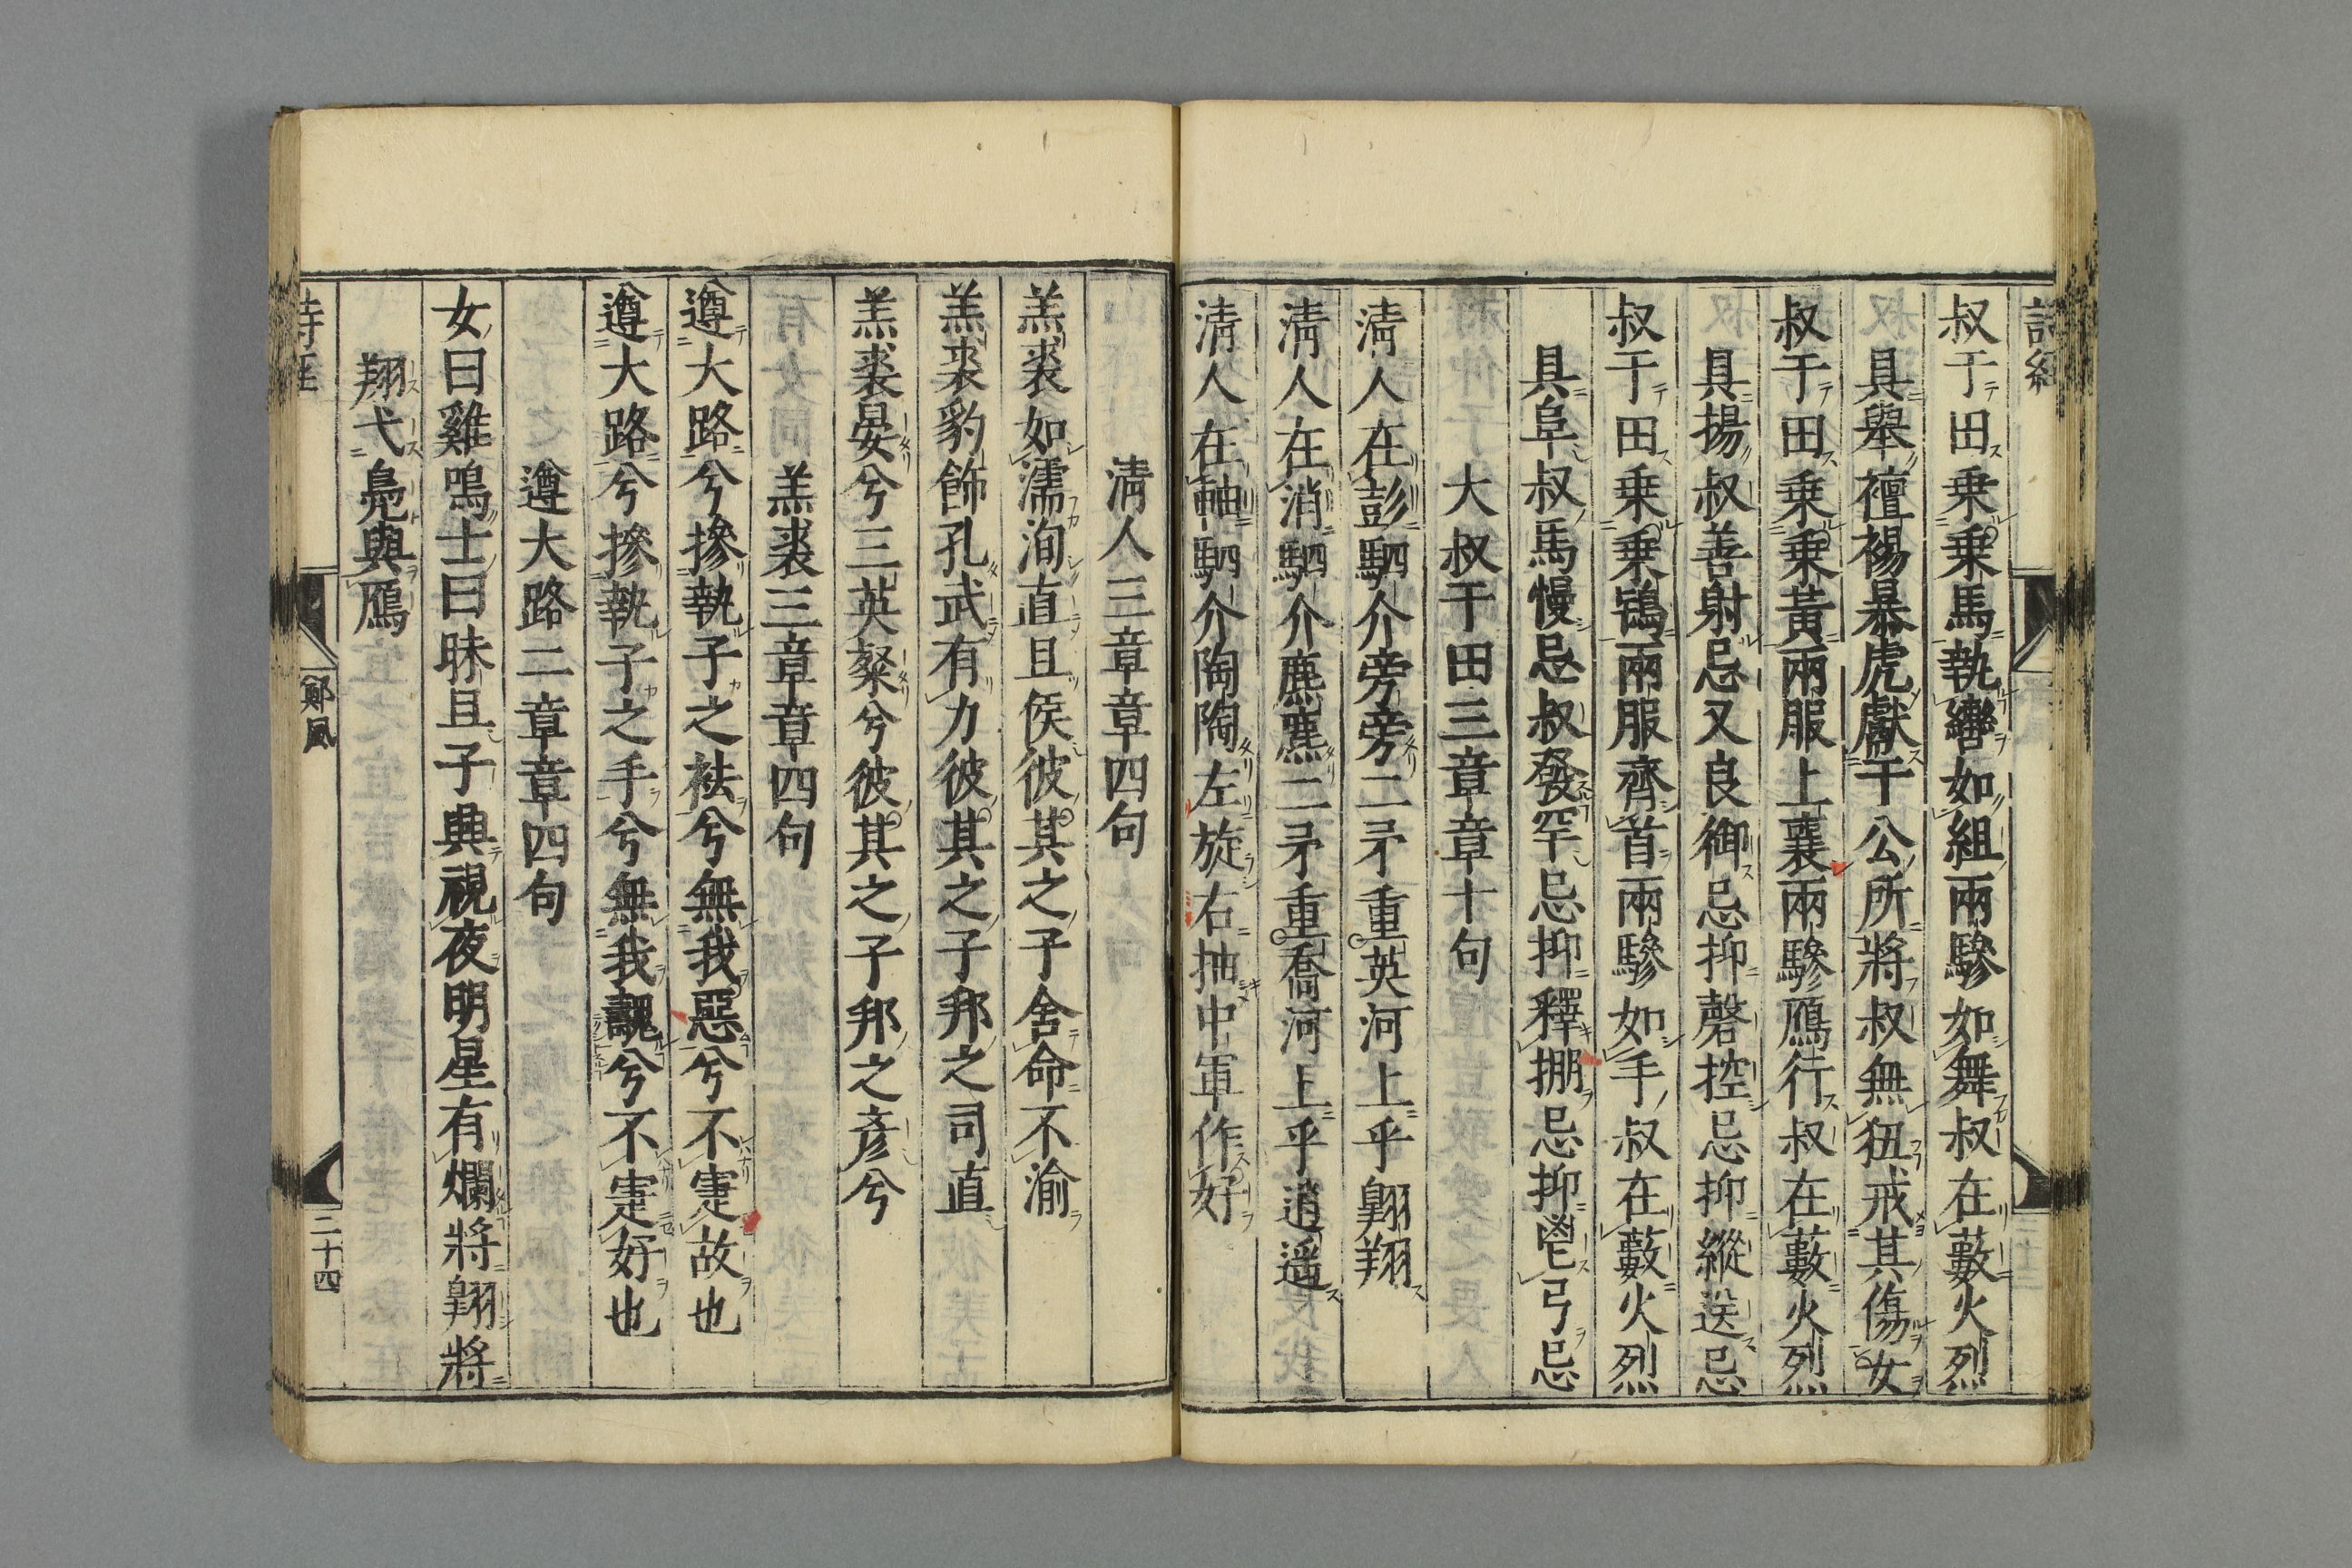 叔于田乗乗馬執轡如組兩驂如舞叔在藪火烈
具舉襢裼暴虎獻于公所將叔無狃戒其傷女
叔于田乗乗黃兩服上襄兩驂鴈行叔在藪火烈
具揚叔善射忌又良御忌抑磬控忌抑縱送忌
叔于田乗乗鴇兩服齊首兩驂如手叔在藪火烈
具阜叔馬慢忌叔發罕忌抑釋掤忌抑鬯弓忌
大叔于田三章章十句
淸人在彭駟介旁旁二矛重英河上乎翺翔
淸人在消駟介麃麃二矛重喬河上乎逍遥
淸人在軸駟介陶陶左旋右抽中軍作好
淸人三章章四句
羔裘如濡洵直且侯彼其之子舍命不渝
羔裘豹飾孔武有力彼其之子邦之司直
羔裘晏兮三英粲兮彼其之子邦之彥兮
羔裘三章章四句
遵大路兮摻執子之袪兮無我惡兮不寁故也
遵大路兮摻執子之手兮無我魗兮不寁好也
遵大路二章章四句
女曰雞鳴士曰昧旦子興視夜明星有爛將翺將
翔弋鳧與鴈
鄭風
二十四